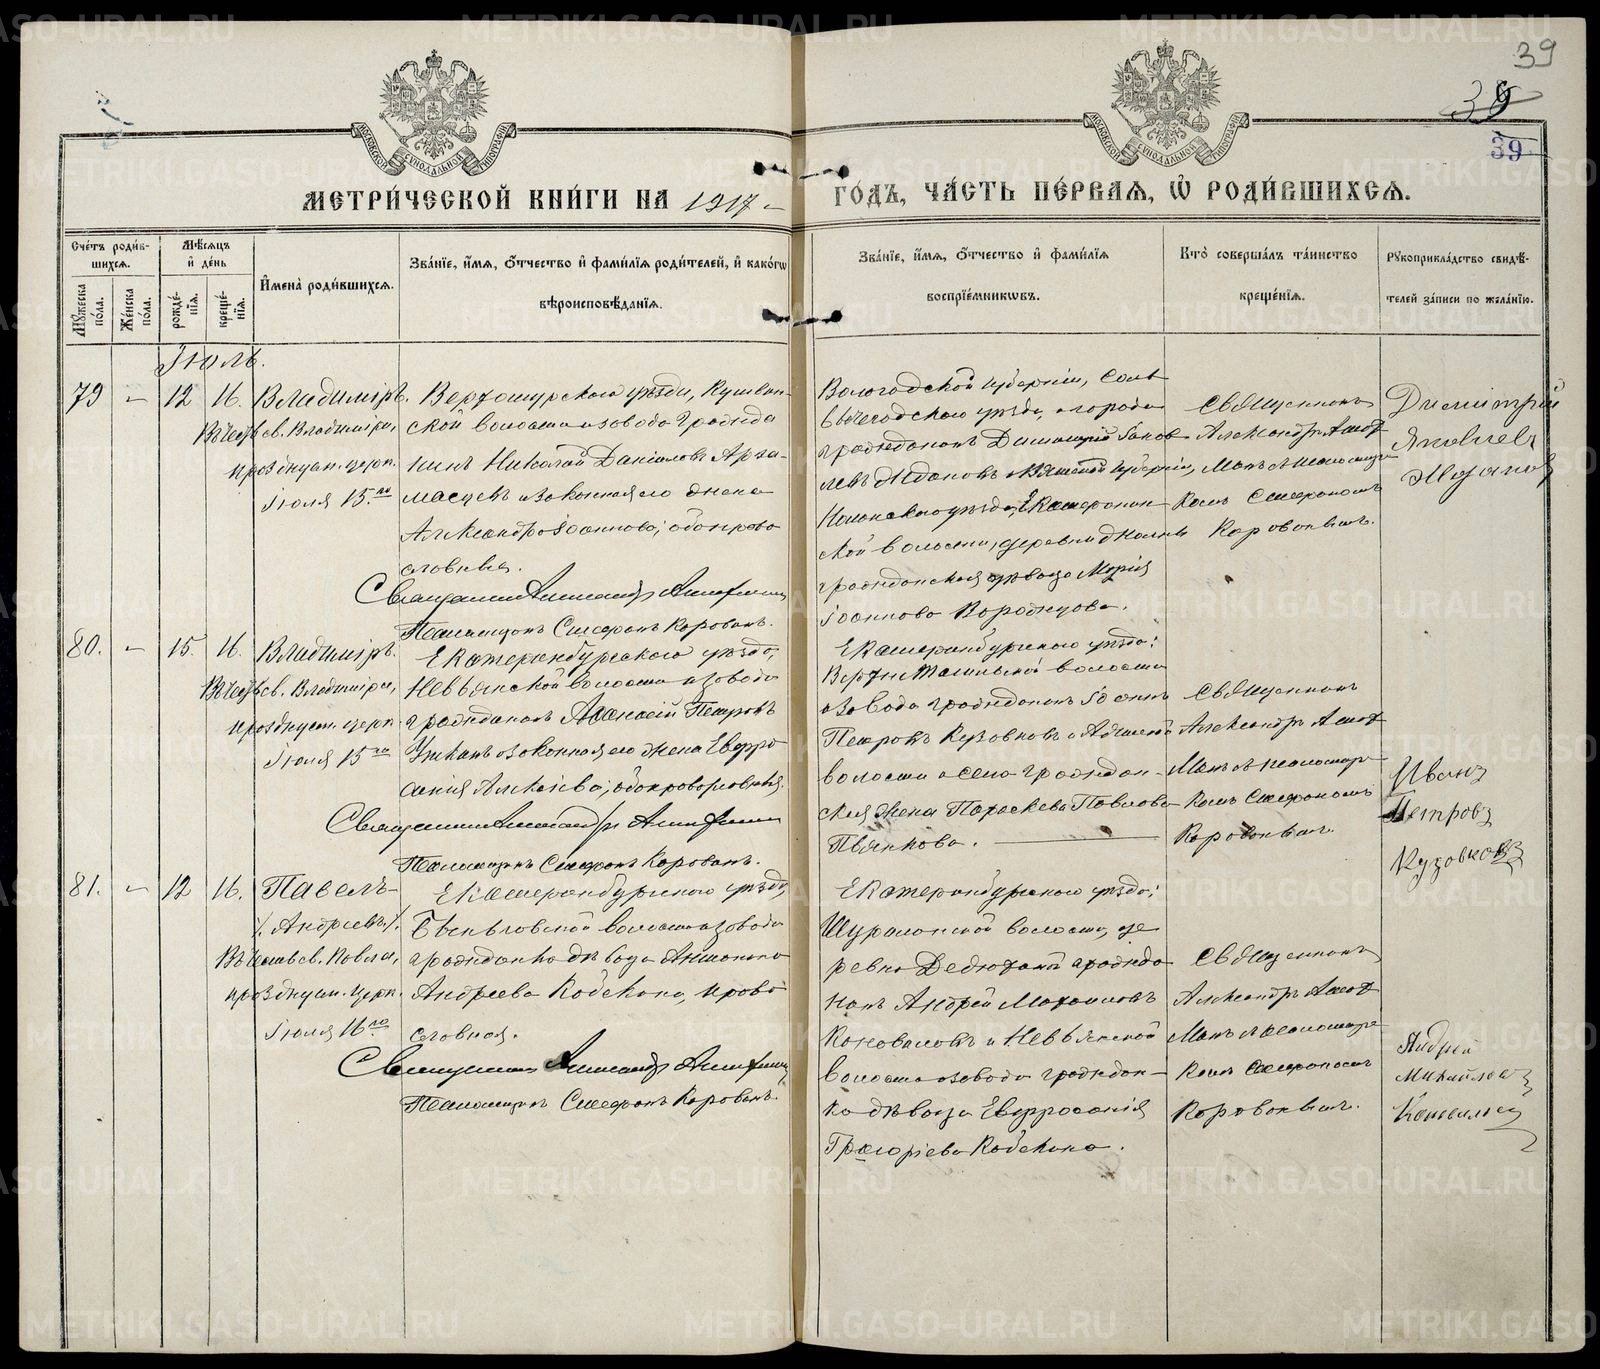 39
39
МЕТРИ́ЧЕСКОЙ КНИ́ГИ НА 1917 ГО́ДЪ, ЧА́СТЬ ПЕ́РВАЯ, Ѡ РОДИ́ВШИХСЯ.
Сче́тъ роди́в-
шихся.
Му́жеска по́ла.
Же́нска по́ла.
Мѣ́сяцъ
и де́нь
рожде́нїя.
креще́нїя.
Имена̀ роди́вшихся.
Зва́нїе, и́мя, ѻ́тчество и фами́лїя роди́телей, и како́гѡ
вѣроисповѣ́данїя.
Зва́нїе, и́мя, ѻ́тчество и фами́лїя
воспрїе́мникѡвъ.
Кто̀ соверша́лъ та́инство
креще́нїя.
Рꙋкоприкла́дство свидѣ́-
телей за́писи по жела́нїю.
Іюль.
79 – 12 16. Владиміръ.
въ честь св. Владиміра,
празднуем. церк.
Іюля 15го
Верхотурскаго уѣзда, Кушвин-
ской волости и завода гражда
нинъ Николай Даніиловъ Арза-
масцевъ и законная его жена
Александра Іоаннова; оба право
славные.
Священникъ Александръ
Псаломщикъ Стефанъ Корованъ.
Вологодской губерніи, Соль
вычегодскаго уѣзда, города
гражданинъ Димитрій Іаков
левъ Жданов и Вятской губерніи,
Нолинскаго уѣзда, Екатеринин-
ской волости, деревни
гражданская дѣвица Марія
Іоаннова
Священникъ
Александръ
съ псаломщи
комъ Стефаномъ
Корованымъ.
Димитрий
Яковлевъ
Жданов
80. – 15. 16. Владиміръ.
въ честь св. Владиміра,
празднуем. церк.
Іюля 15го
Екатеринбургскаго уѣзда,
Невьянской волости и завода
гражданинъ Алексій Петровъ
и законная его жена Евфро
синія Алексіева; оба православные.
Священникъ Александръ
Псаломщикъ Стефанъ Корованъ.
Екатеринбургскаго уѣзда:
Верхне Тагильской волости
и завода гражданинъ Іоаннъ
Петровъ Кузовковъ и
волости и села граждан-
ская жена Параскева Павлова
Пьянкова.
Священникъ
Александръ
съ псаломщи
комъ Стефаномъ
Корованымъ.
Иванъ
Петровъ
Кузовковъ
81. – 12 16. Павелъ
/. Андреевъ /.
въ честь св. Павла,
празднуем. церк.
Іюля 16го
Екатеринбургскаго уѣзда,
Быньговской волости и завода
гражданка дѣвица Антонина
Андреева право
славная.
Священникъ Александръ
Псаломщикъ Стефанъ Корованъ.
Екатеринбургскаго уѣзда:
Шуралинской волости, де
ревни гражда
нинъ Андрей Михаиловъ
Коноваловъ и Невьянской
волости и завода граждан-
ка дѣвица Евфросинія
Григоріева
Священникъ
Александръ
съ псаломщи
комъ Стефаномъ
Корованымъ.
Андрей
Михайлов